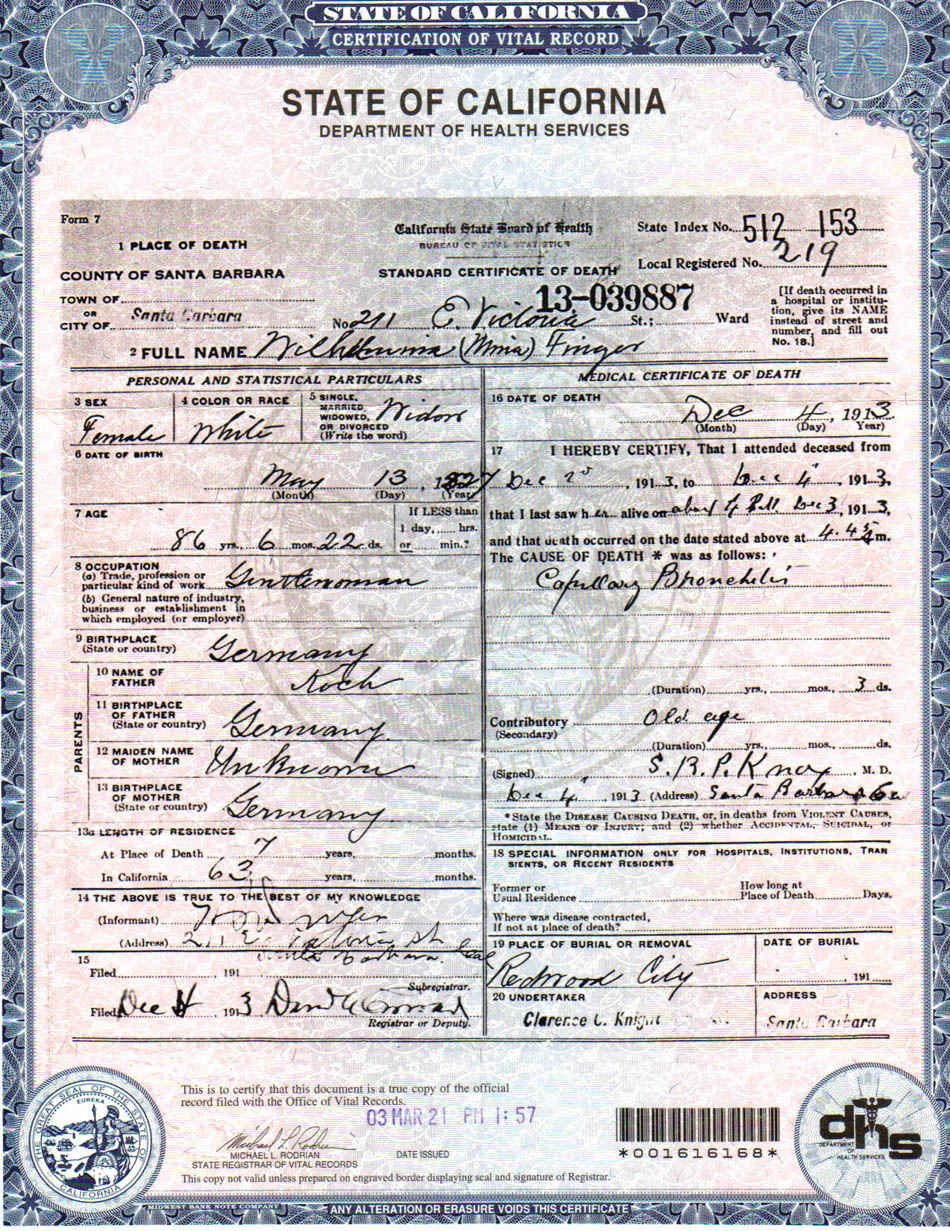 STATE OF CALIFORNIA
CERTIFICATION OF VITAL RECORD
STATE OF CALIFORNIA
DEPARTMENT OF HEALTH SERVICES
Form 7
California State Board of Health
BUREAU OF VITAL STATISTICS
State Index No. 512 153
1 PLACE OF DEATH
Local Registered No. 219
COUNTY OF SANTA BARBARA
STANDARD CERTIFICATE OF DEATH
13-039887
TOWN OF
OR
CITY OF Santa Barbara No. 211 E. Victoria St.; Ward
[If death occurred in a hospital or institution, give its NAME instead of street and number, and fill out No. 18.]
2 FULL NAME Wilhelmina (Mina) Finger
PERSONAL AND STATISTICAL PARTICULARS
3 SEX Female
4 COLOR OR RACE White
5 SINGLE, MARRIED, WIDOWED, OR DIVORCED (Write the word) Widow
6 DATE OF BIRTH
May 13, 1827
(Month) (Day) (Year)
7 AGE
86 yrs. 6 mos. 22 ds.
If LESS than 1 day, hrs. or min.?
8 OCCUPATION
(a) Trade, profession or particular kind of work Gentlewoman
(b) General nature of industry, business or establishment in which employed (or employer)
9 BIRTHPLACE (State or country) Germany
PARENTS
10 NAME OF FATHER Koch
11 BIRTHPLACE OF FATHER (State or country) Germany
12 MAIDEN NAME OF MOTHER Unknown
13 BIRTHPLACE OF MOTHER (State or country) Germany
13a LENGTH OF RESIDENCE
At Place of Death 7 years, months.
In California 63 years, months.
14 THE ABOVE IS TRUE TO THE BEST OF MY KNOWLEDGE
(Informant)
(Address) 211 E. Victoria St
Santa Barbara. Cal
15
Filed 191
Subregistrar.
Filed Dec 4 1913
Registrar or Deputy.
MEDICAL CERTIFICATE OF DEATH
16 DATE OF DEATH
Dec 4, 1913
(Month) (Day) Year)
17 I HEREBY CERTIFY, That I attended deceased from
Dec 2, 1913, to Dec 4, 1913,
that I last saw her alive on about 4 P.M. Dec 3, 1913,
and that death occurred on the date stated above at 4.45 m.
The CAUSE OF DEATH * was as follows:
Capillary Bronchitis
(Duration) yrs., mos., 3 ds.
Contributory (Secondary) Old age
(Duration) yrs., mos., ds.
(Signed) S. R. P. Knox, M. D.
Dec 4, 1913 (Address) Santa Barbara Ca
*State the DISEASE CAUSING DEATH, or, in deaths from VIOLENT CAUSES,
state (1) MEANS OF INJURY; and (2) whether ACCIDENTAL, SUICIDAL, or
HOMICIDAL.
18 SPECIAL INFORMATION ONLY FOR HOSPITALS, INSTITUTIONS, TRANSIENTS, OR RECENT RESIDENTS
Former or Usual Residence
How long at Place of Death Days.
Where was disease contracted,
If not at place of death?
19 PLACE OF BURIAL OR REMOVAL
Redwood City
DATE OF BURIAL
191
20 UNDERTAKER
Clarence C. Knight
ADDRESS
Santa Barbara
This is to certify that this document is a true copy of the official
record filed with the Office of Vital Records.
03 MAR 21 PM 1:57
Michael L. Rodrian
MICHAEL L. RODRIAN
STATE REGISTRAR OF VITAL RECORDS
DATE ISSUED
*001616168*
This copy not valid unless prepared on engraved border displaying seal and signature of Registrar.
THE GREAT SEAL OF THE STATE OF CALIFORNIA
EUREKA
dhs
DEPARTMENT OF HEALTH SERVICES
MIDWEST BANK NOTE COMPANY
ANY ALTERATION OR ERASURE VOIDS THIS CERTIFICATE